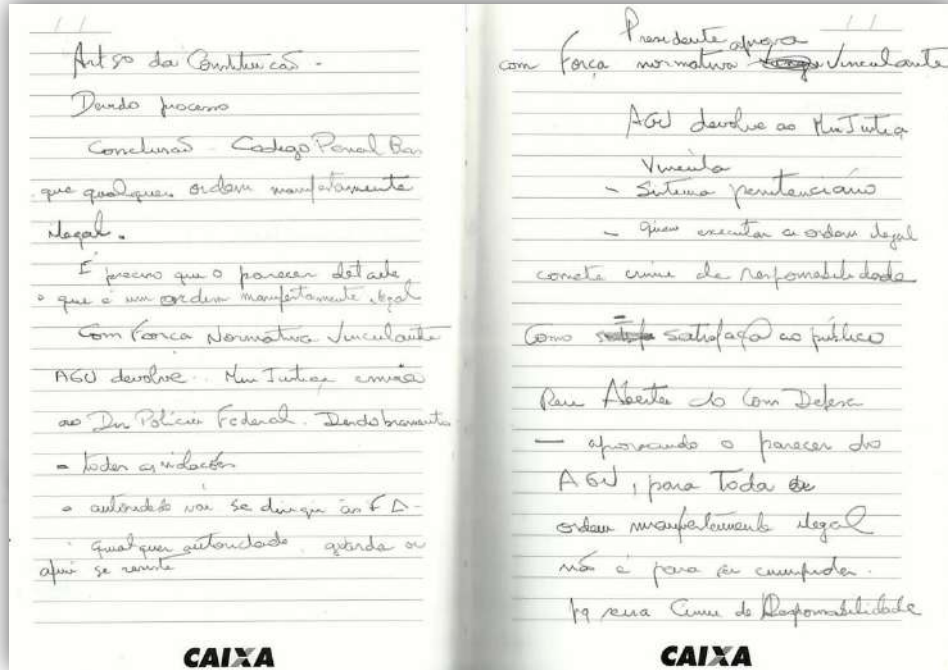 Art 50 da Constituicão -
Devido processo
Conclusão - Codigo Penal
que qualquer ordem manifestamente
ilegal.
É preciso que o parecer detalhe
o que é um ordem manifestamente ilegal
Com Força Normativa Vinculante
AGU devolve Min Justiça envia
ao Dir Polícia Federal. Desdobramento
- todas as violações
autoridade vai se dirigir às
qualquer autoridade
se
CAIXA
Presidente aprova
com Força normativa Vinculante
AGU devolve ao Min Justiça
Vincula
- Sistema penitenciário
- quem executar a ordem ilegal
comete crime de responsabilidade
Como satisfação ao público
Aberta do Com Defesa
- aprovando o parecer do
AGU, para Toda
ordem manifestamente ilegal
não é para ser cumprida.
pq seria Crime de Responsabilidade
CAIXA